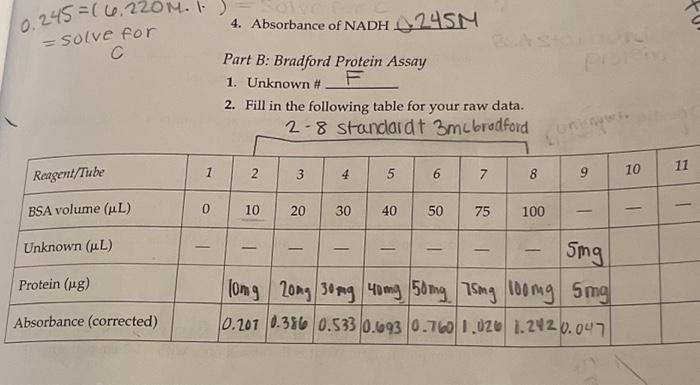 0.245 = (6.220M. 1. )
= solve for
C
4. Absorbance of NADH 0.245M
Part B: Bradford Protein Assay
1. Unknown # F
2. Fill in the following table for your raw data.
2-8 standard + 3mL bradford
Reagent/Tube 1 2 3 4 5 6 7 8 9 10 11
BSA volume (µL) 0 10 20 30 40 50 75 100 — — —
Unknown (µL) — — — — — — — — 5mg
Protein (µg) 10mg 20mg 30mg 40mg 50mg 75mg 100mg 5mg
Absorbance (corrected) 0.207 0.386 0.533 0.693 0.760 1.026 1.242 0.047